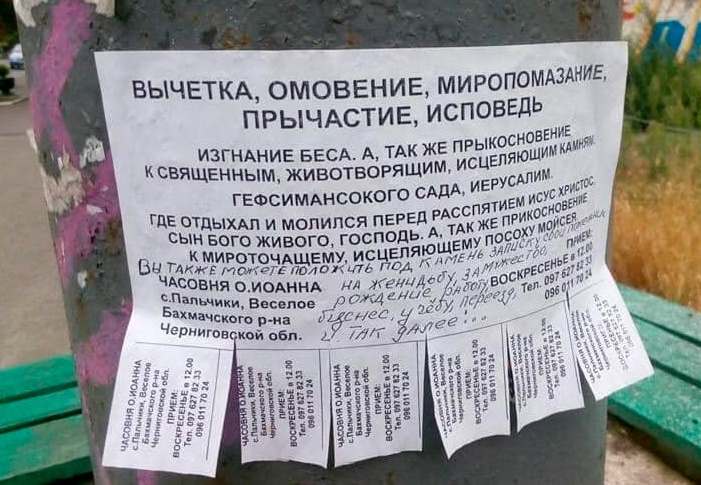 ВЫЧЕТКА, ОМОВЕНИЕ, МИРОПОМАЗАНИЕ,
ПРЫЧАСТИЕ, ИСПОВЕДЬ
ИЗГНАНИЕ БЕСА. А, ТАК ЖЕ ПРЫКОСНОВЕНИЕ
К СВЯЩЕННЫМ, ЖИВОТВОРЯЩИМ, ИСЦЕЛЯЮЩИМ КАМНЯМ.
ГЕФСИМАНСОКОГО САДА, ИЕРУСАЛИМ.
ГДЕ ОТДЫХАЛ И МОЛИЛСЯ ПЕРЕД РАСПЯТИЕМ ИСУС ХРИСТОС,
СЫН БОГО ЖИВОГО, ГОСПОДЬ. А, ТАК ЖЕ ПРИКОСНОВЕНИЕ
К МИРОТОЧАЩЕМУ, ИСЦЕЛЯЮЩЕМУ ПОСОХУ МОЙСЕЯ.
ВЫ ТАКЖЕ МОЖЕТЕ ПОЛОЖИТЬ ПОД КАМЕНЬ ЗАПИСКУ СВОИ
НА ЖЕНИДЬБУ, ЗАМУЖЕСТВО,
РОЖДЕНИЕ, РАБОТУ,
БИЗНЕС, УЧЁБУ, ПЕРЕЕЗД,
И ТАК ДАЛЕЕ...
ЧАСОВНЯ О.ИОАННА
с.Пальчики, Веселое
Бахмачского р-на
Черниговской обл.
ПРИЕМ:
ВОСКРЕСЕНЬЕ в 12.00
Тел. 097 627 82 33
096 011 70 24
ЧАСОВНЯ О.ИОАННА
с.Пальчики, Веселое
Бахмачского р-на
Черниговской обл.
ПРИЕМ:
ВОСКРЕСЕНЬЕ в 12.00
Тел. 097 627 82 33
096 011 70 24
ЧАСОВНЯ О.ИОАННА
с.Пальчики, Веселое
Бахмачского р-на
Черниговской обл.
ПРИЕМ:
ВОСКРЕСЕНЬЕ в 12.00
Тел. 097 627 82 33
096 011 70 24
ЧАСОВНЯ О.ИОАННА
с.Пальчики, Веселое
Бахмачского р-на
Черниговской обл.
ПРИЕМ:
ВОСКРЕСЕНЬЕ в 12.00
Тел. 097 627 82 33
096 011 70 24
ЧАСОВНЯ О.ИОАННА
с.Пальчики, Веселое
Бахмачского р-на
Черниговской обл.
ПРИЕМ:
ВОСКРЕСЕНЬЕ в 12.00
Тел. 097 627 82 33
096 011 70 24
ЧАСОВНЯ О.ИОАННА
с.Пальчики, Веселое
Бахмачского р-на
Черниговской обл.
ПРИЕМ:
ВОСКРЕСЕНЬЕ в 12.00
Тел. 097 627 82 33
096 011 70 24
ЧАСОВНЯ О.ИОАННА